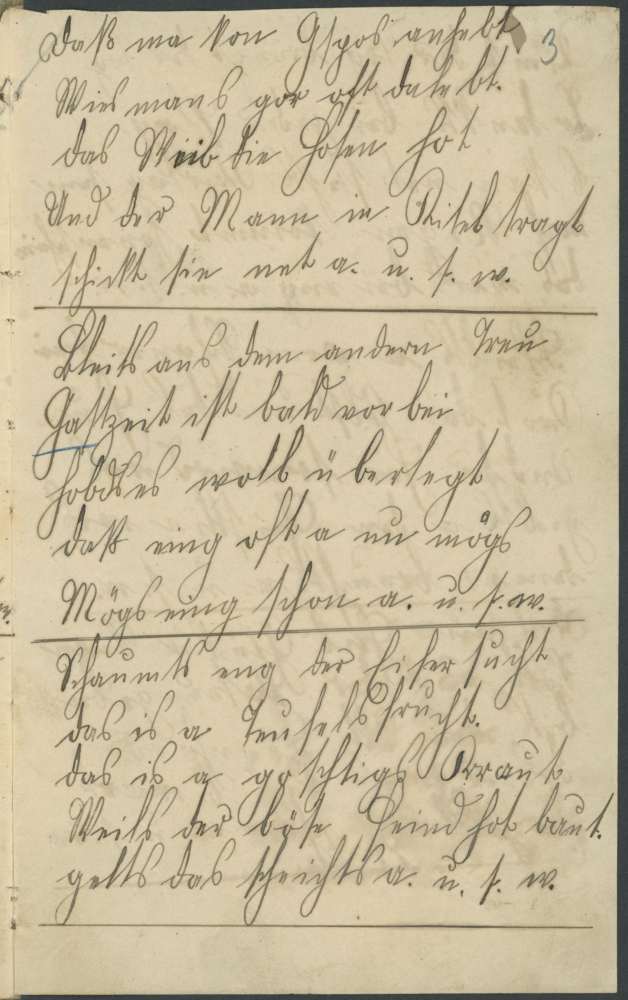 Daß ma von Gspos anhebt 3
Wies mans gor oft dalebt.
das Weib die Hosen hot
Und der Mann in Kitel tragt
schickt sie net a. u. s. w.
Bleits ans dem andern Treu
Fastzeit ist bald vorbei
Hobds es woll überlegt
daß eing oft a nu mögs
Mögs eing schon a. u. s. w.
Schaumts eng der Eifersucht
das is a Teufelsfrucht.
das is a goschtigs Kraut
Weils der böse Feind hot baut.
gelts das scheichts a. u. s. w.